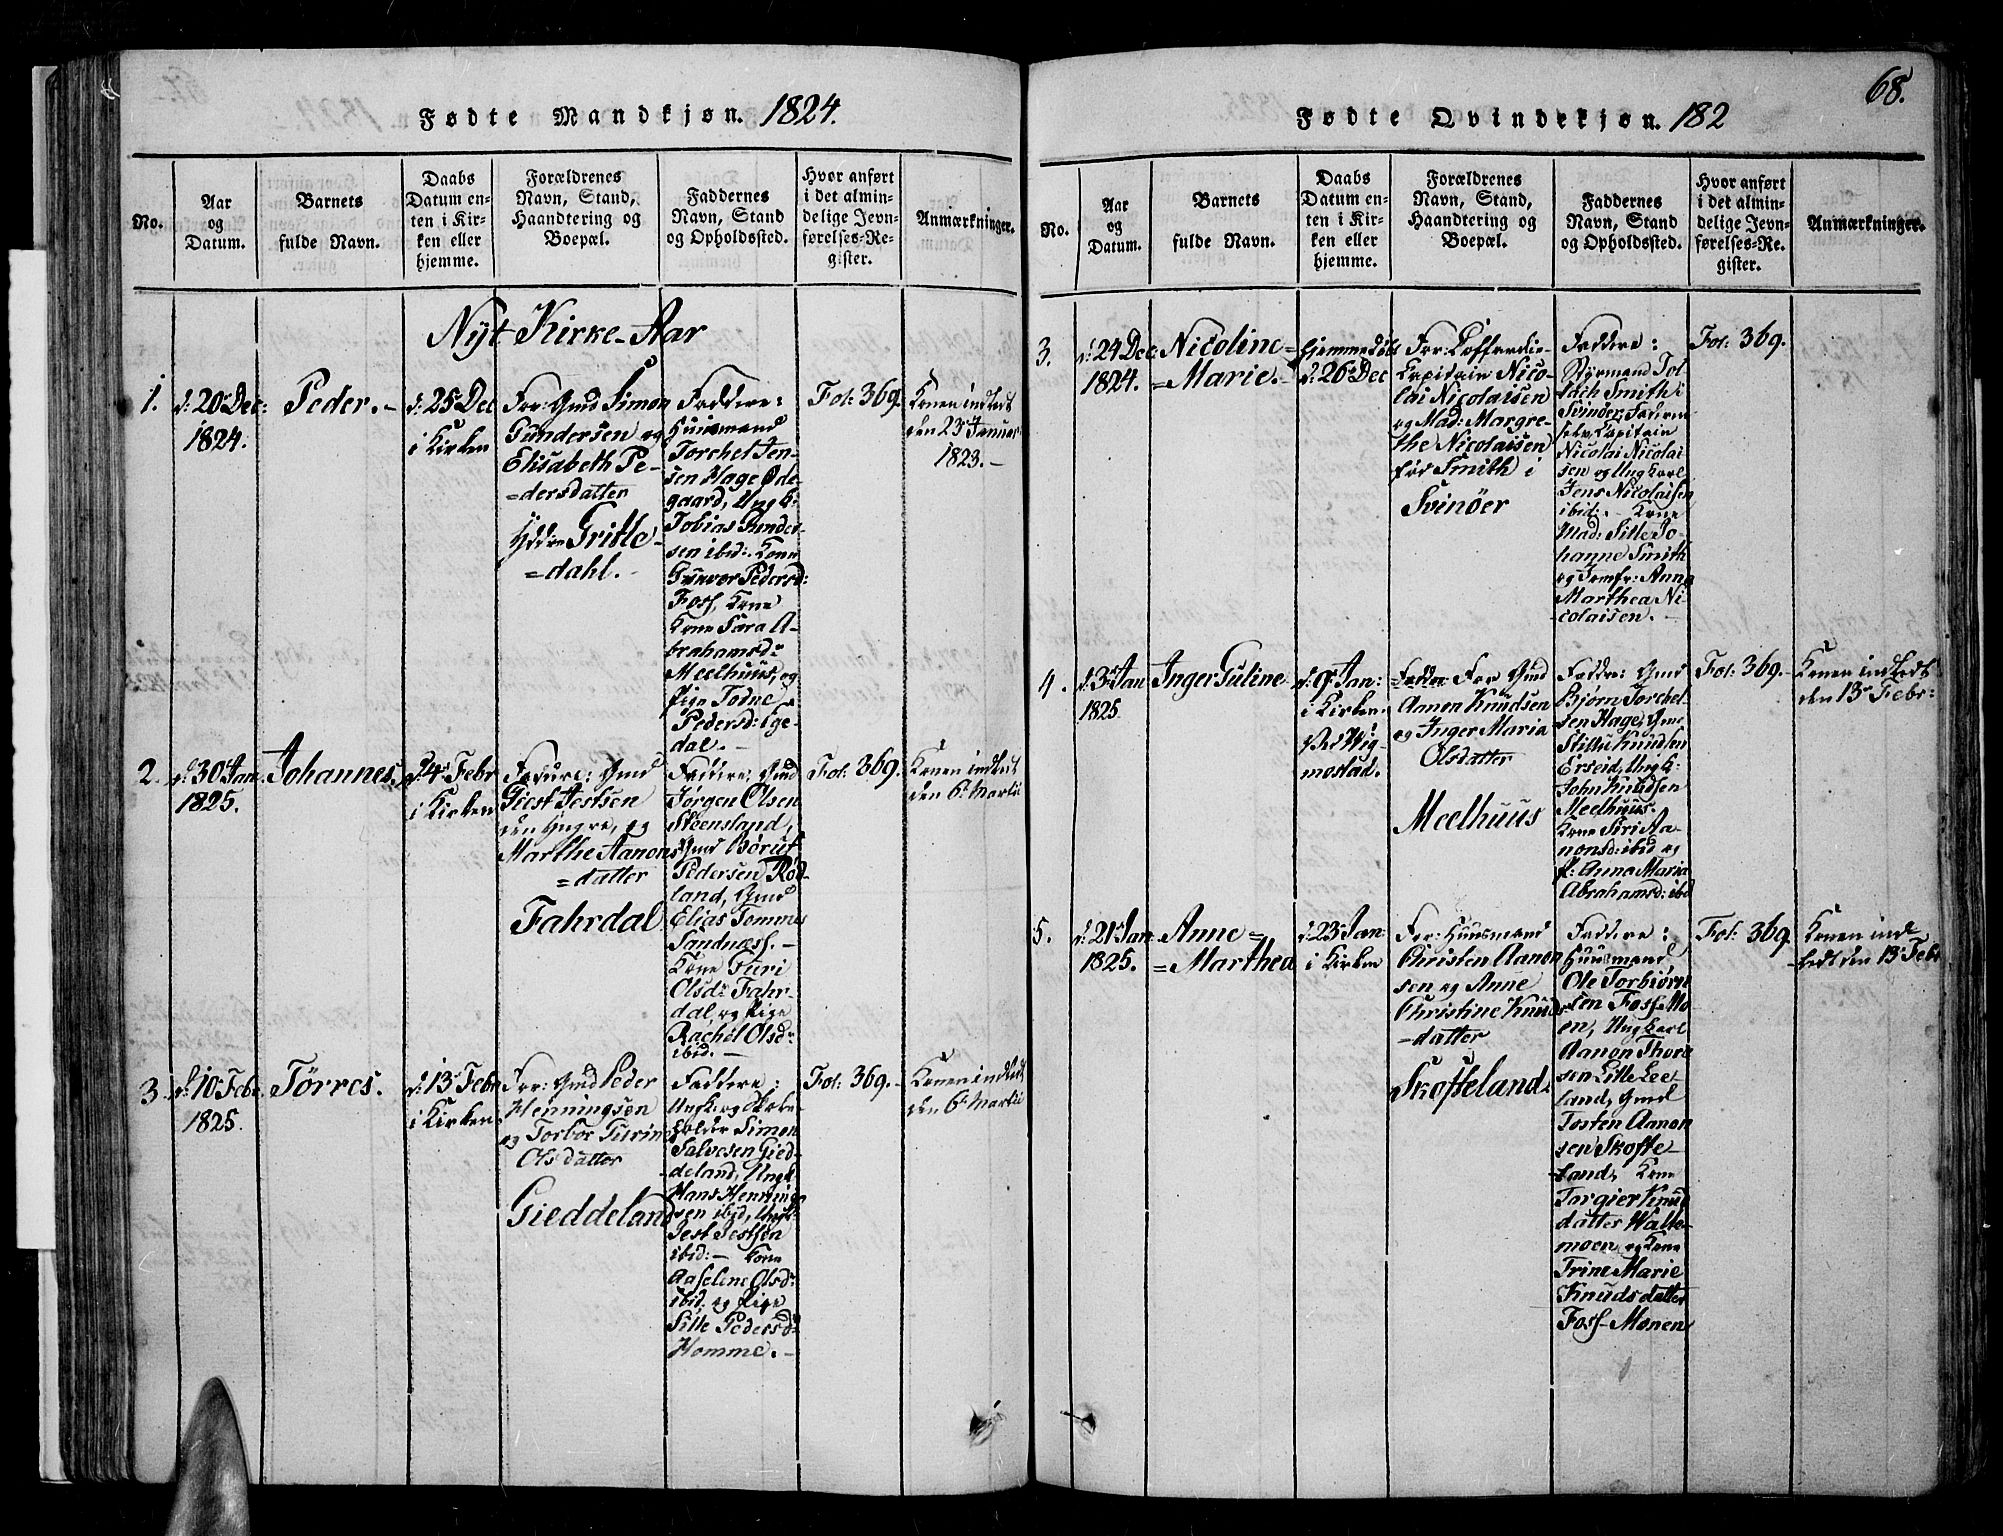 Fødte Mandkjøn. 1824.
No.
Aar
og
Datum.
Barnets
fulde Navn.
Daabs
Datum en-
ten i Kir-
ken eller
hjemme.
Forældrenes
Navn, Stand,
Haandtering og
Boepæl.
Faddernes
Navn, Stand
og Opholdssted.
Hvor anført
i det almin-
delige Jevn-
førelses-Re-
gister.
Anmærkninger.
Nyt Kirke-Aar
1.
d: 20 Dec:
1824.
Peder.
d: 25 Dec
i Kirken
For: Gmd Simon
Gundersen og
Elisabeth Pe-
=dersdatter
Yddre Gritle-
=dahl.
Faddere:
Huusmand
Torchel Jen-
sen Hage Øde-
gaard, Ung k:
Tobias Gunder-
sen ibid: Kone
Gunvor Pedersd:
Foss, Kone
Kone Sara A-
brahamsd:
Meelhuus, og
Pige Todne
Pedersd: Ege-
dal.
Fol: 369.
Konen indledt
den 23 Januar
1823.
2.
d: 30 Jan
1825.
Johannes.
d: 4 Febr
i Kirken
Gmd
Giest Jestsen
den Yngre, og
Marthe Aanons
=datter
Fahrdal
Faddere: Gmd
Jørgen Olsen
Steensland,
Gmd Børuf
Pedersen Rød-
land, Gmd
Elias Tommes
Sandnæss.
Kone Guri
Olsd: Fahr-
dal, og Pige
Rachel Olsd:
ibid.
Fol: 369.
Konen indledt
den 6 Martii
3.
d: 10 Febr
1825.
Tørres.
d: 13 Febr
i Kirken
For: Gmd Peder
Henningsen
og Torbor Gurine
Olsdatter
Gieddeland
Faddere:
Simon
Salvesen Gied-
deland, Ungk
Hans Henning-
sen ibid, Ungk
Jest Jestsen
ibid: Kone
Aaseline Olsd:
ibid. og Pige
Sille Pedersd:
Homme.
Fol: 369.
Konen indledt
den 6 Martii
68.
Fødte Qvindekjøn. 182
No.
Aar
og
Datum.
Barnets
fulde Navn.
Daabs
Datum en-
ten i Kir-
ken eller
hjemme.
Forældrenes
Navn, Stand,
Haandtering og
Boepæl.
Faddernes
Navn, Stand
og Opholdssted.
Hvor anført
i det almin-
delige Jevn-
førelses-Re-
gister.
Anmærkninger.
3.
d: 24 Dec
1824.
Nicoline=
=Marie.
Hjemmedøbt
d: 26 Dec
For: Coffardie-
Capitain Nico-
lai Nicolaisen
og Mad: Margre-
the Nicolaisen
fød Smith i
Svinöer
Faddere:
Styrmand
Smith i
Svinöer, Faderen
selv, Capitain
Nicolai Nicolai-
sen og Ungkarl
Jens Nicolaisen
ibid: Kone
Mad: Sille Jo-
hanne Smith
og Jomfr: Anne
Marthea Ni-
colaisen.
Fol: 369.
4.
d: 3 Jan
1825.
Inger Guline
d: 9 Jan:
i Kirken
Ved Vig-
mostad.
For Gmd
Aanen Knudsen
og Inger Maria
Olsdatter
Meelhuus
Faddere: Gmd
Bjørn Torchel-
sen Hage, Gmd
Knudsen
Erseid, Ungk:
John Knudsen
Meelhuus
Kone Siri Aa-
nonsd: ibid og
P: Anne Maria
Abrahamsd: ibid
Fol: 369.
Konen indledt
den 13 Febr:
5.
d: 21 Jan
1825.
Anne=
=Marthea
d: 23 Jan:
i Kirken
For: Huusmand
Christen Aanon
sen og Anne
Christine Knuds
=datter
Skofteland.
Faddere:
Huusmand
Ole Torbiørn
sen Foss-Mo-
en, Ungkarl
Aanon Thore
sen Lille Lee-
land, Gmd
Tosten Aanon
sen Skofte-
land, Kone
Torgier Knud
datter Valle-
moen, og Kone
Trine Marie
Knudsdatter
Foss-Monen
Fol: 369
Konen ind-
ledt den 13 Febr